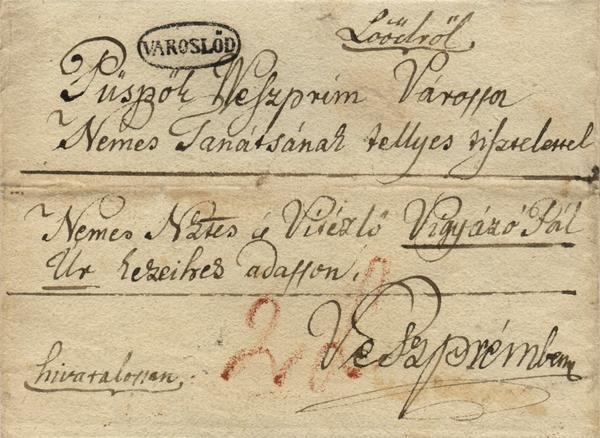 VAROSLÖD
Lőődről
Püspök Weszprim Várossa
Nemes Tanátsának tellyes tisztelettel
Nemes Nztes és Vitézlő Vigyázó Pál
Úr kezeihez adasson.
Veszprémben
hivatalossan.